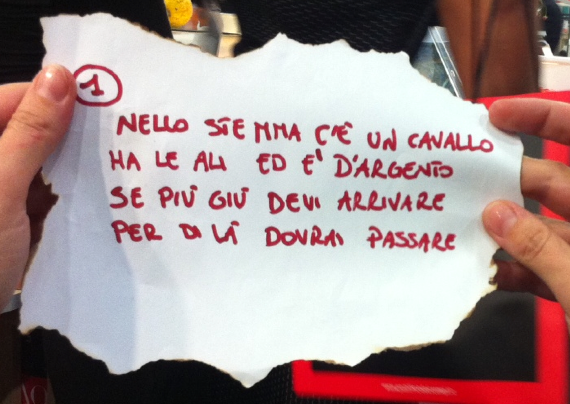 1
NELLO STEMMA C'È UN CAVALLO
HA LE ALI ED E' D'ARGENTO
SE PIÙ GIÙ DEVI ARRIVARE
PER DI LÀ DOVRAI PASSARE